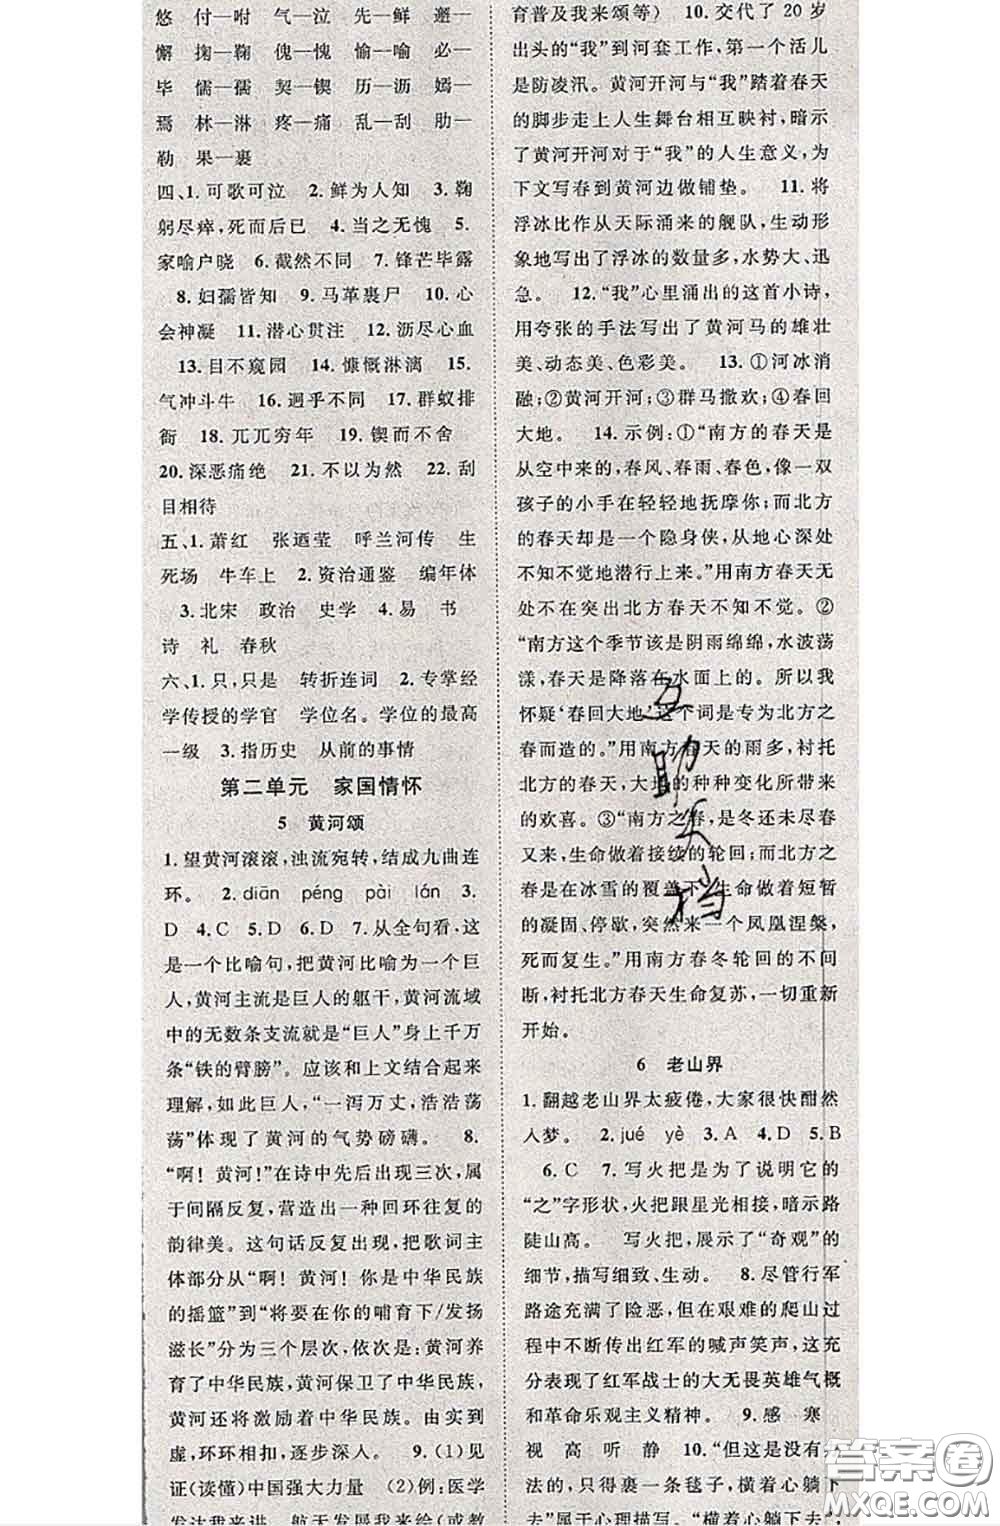 悠　付—咐　气—泣　先—鲜　邂—
懈　掬—鞠　傀—愧　愉—喻　必—
毕　懦—孺　契—锲　历—沥　嫣—
焉　林—淋　疼—痛　乱—刮　肋—
勒　果—裹
四、1. 可歌可泣　2. 鲜为人知　3. 鞠
躬尽瘁,死而后已　4. 当之无愧　5.
家喻户晓　6. 截然不同　7. 锋芒毕露
8. 妇孺皆知　9. 马革裹尸　10. 心
会神凝　11. 潜心贯注　12. 沥尽心血
13. 目不窥园　14. 慷慨淋漓　15.
气冲斗牛　16. 迥乎不同　17. 群蚁排
衙　18. 兀兀穷年　19. 锲而不舍
20. 深恶痛绝　21. 不以为然　22. 刮
目相待
五、1. 萧红　张迺莹　呼兰河传　生
死场　牛车上　2. 资治通鉴　编年体
3. 北宋　政治　史学　4. 易　书
诗　礼　春秋
六、1. 只,只是　转折连词　2. 专掌经
学传授的学官　学位名。学位的最高
一级　3. 指历史　从前的事情
第二单元　家国情怀
5　黄河颂
1. 望黄河滚滚,浊流宛转,结成九曲连
环。　2. diān　péng　pài　lán　3.
D　4. C　5. D　6. D　7. 从全句看,这
是一个比喻句,把黄河比喻为一个巨
人,黄河主流是巨人的躯干,黄河流域
中的无数条支流就是“巨人”身上千万
条“铁的臂膀”。应该和上文结合起来
理解,如此巨人,“一泻万丈,浩浩荡
荡”体现了黄河的气势磅礴。　8.
“啊！黄河!”在诗中先后出现三次,属
于间隔反复,营造出一种回环往复的
韵律美。这句话反复出现,把歌词主
体部分从“啊！黄河！你是中华民族
的摇篮”到“将要在你的哺育下/发扬
滋长”分为三个层次,依次是:黄河养
育了中华民族,黄河保卫了中华民族,
黄河还将激励着中华民族。由实到
虚,环环相扣,逐步深入。　9. (1)见
证(读懂)中国强大力量　(2)例:医学
发达我来讲　航天发展我来绘(或教
育普及我来颂等)　10. 交代了 20 岁
出头的“我”到河套工作,第一个活儿
是防凌汛。黄河开河与“我”踏着春天
的脚步走上人生舞台相互映衬,暗示
了黄河开河对于“我”的人生意义,为
下文写春到黄河边做铺垫。　11. 将
浮冰比作从天际涌来的舰队,生动形
象地写出了浮冰的数量多,水势大、迅
急。　12. “我”心里涌出的这首小诗,
用夸张的手法写出了黄河马的雄壮
美、动态美、色彩美。　13. ①河冰消
融;②黄河开河;③群马撒欢;④春回
大地。　14. 示例:①“南方的春天是
从空中来的,春风、春雨、春色,像一双
孩子的小手在轻轻地抚摩你;而北方
的春天却是一个隐身侠,从地心深处
不知不觉地潜行上来。”用南方春天无
处不在突出北方春天不知不觉。②
“南方这个季节该是阴雨绵绵,水波荡
漾,春天是降落在水面上的。所以我
怀疑‘春回大地’这个词是专为北方之
春而造的。”用南方春天的雨多,衬托
北方的春天,大地的种种变化所带来
的欢喜。③“南方之春,冬还未尽春
又来,生命做着接续的轮回;而北方之
春是在冰雪的覆盖下,生命做着短暂
的凝固、停歇,突然来一个凤凰涅槃,
死而复生。”用南方春冬轮回的不间
断,衬托北方春天生命复苏,一切重新
开始。
6　老山界
1. 翻越老山界太疲倦,大家很快酣然
入梦。　2. jué　yè　3. A　4. D　5. B
6. C　7. 写火把是为了说明它的
“之”字形状,火把跟星光相接,暗示路
陡山高。　写火把,展示了“奇观”的
细节,描写细致、生动。　8. 尽管行军
路途充满了险恶,但在艰难的爬山过
程中不断传出红军的喊声笑声,这充
分表现了红军战士的大无畏英雄气概
和革命乐观主义精神。　9. 感　寒
视　高　听　静　10. “但这是没有办
法的,只得裹一条毯子,横着心躺下
去。”属于心理描写。“横着心躺下去”
互助文档
答案圈
MXQE.COM